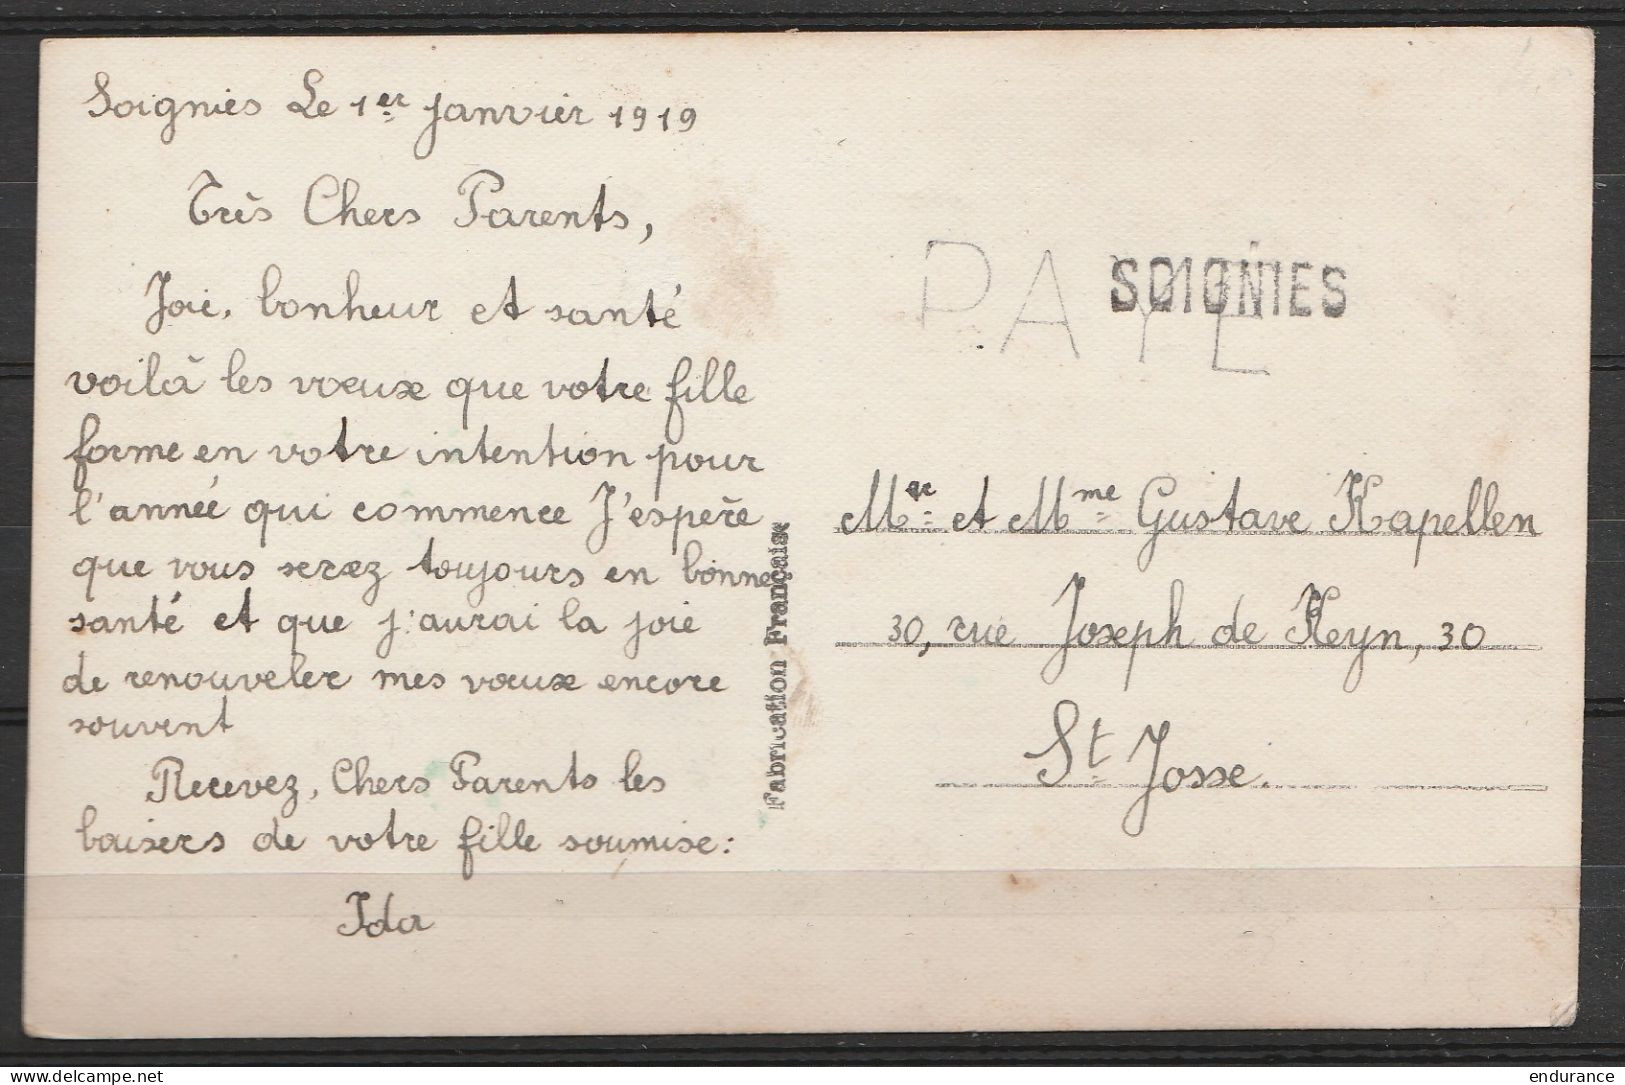 Soignies Le 1er janvier 1919
Très Chers Parents,
Joie, bonheur et santé
voilà les vœux que votre fille
forme en votre intention pour
l'année qui commence J'espère
que vous serez toujours en bonne
santé et que j'aurai la joie
de renouveler mes vœux encore
souvent
Recevez, Chers Parents les
baisers de votre fille soumise:
Ida
Fabrication Française
PAYE
SOIGNIES
Mr et Mme Gustave Kapellen
30, rue Joseph de Keyn, 30
St Josse.
endurance